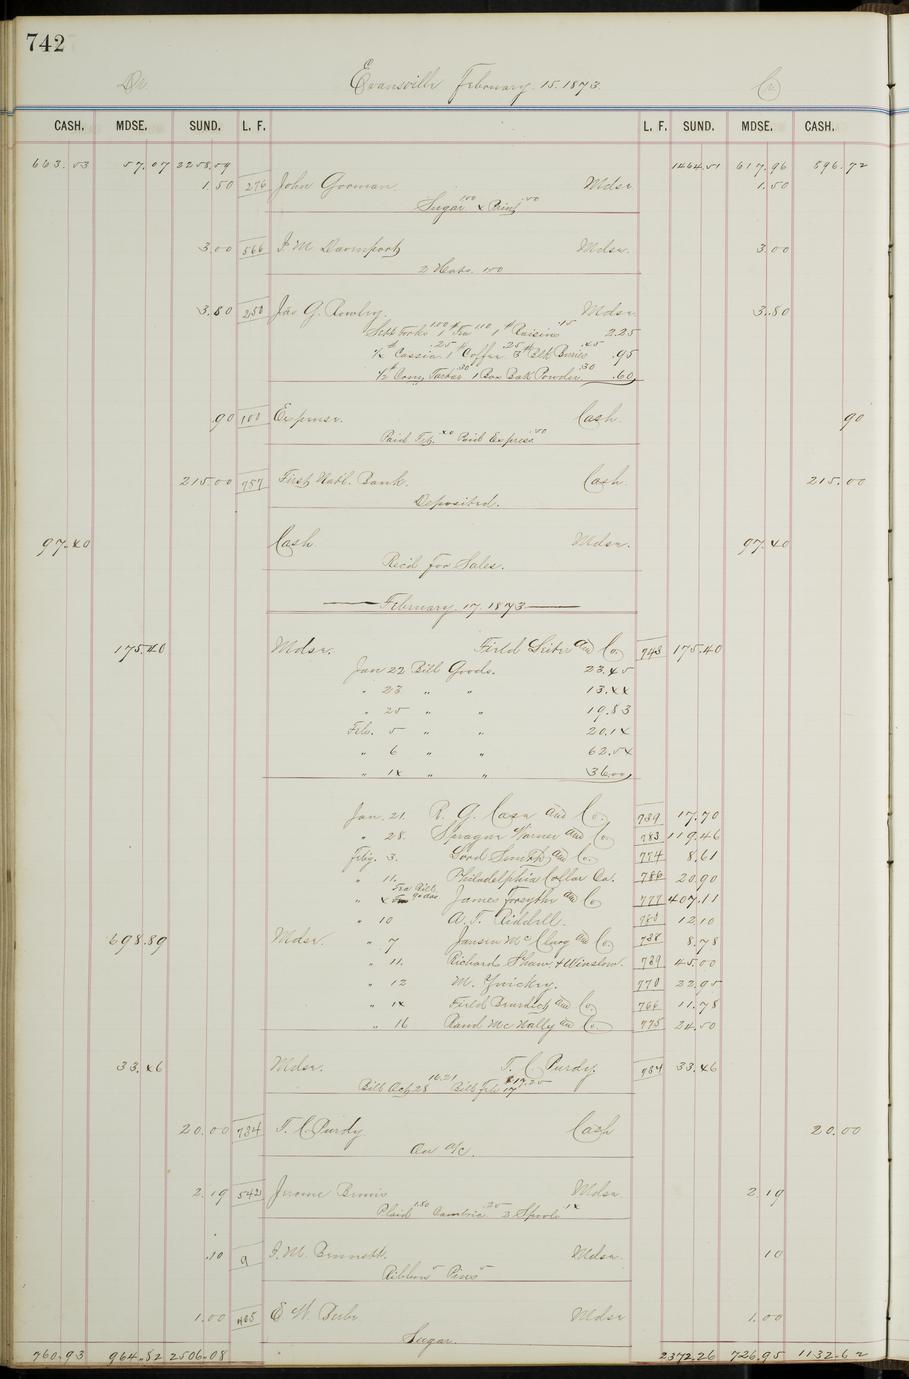 742
Dr. Evansville February. 15. 1873. Cr.
CASH. MDSE. SUND. L. F. L. F. SUND. MDSE. CASH.
663.53 57.07 2258.59 1464.51 617.96 896.72
1.50 276 John Gorman. Mdse 1.50
Sugar 1.00 & Print .50
3.00 566 I. M. Davenport Mdse. 3.00
2 Hats. 150
3.80 250 Jas G. Rowley. Mdse 3.80
Sett Forks 100 1# Tea 110 1# Raisins 15 2.25
½# Cassia .25 1# Coffee .25 3# Blk Berries .45 .95
½# Crm Tartar .30 1 Box Bak Powder .30 .60
.90 100 Expense. Cash. 90
Paid Frt. 40 Paid Express 50
215.00 757 First Natl. Bank. Cash. 215.00
Deposited.
97.40 Cash Mdse. 97.40
Rec'd for Sales.
February. 17. 1873
175.40 Mdse. Field Leiter and Co. 743 175.40
Jan 22 Bill Goods. 23.45
" 23 " " 13.44
" 25 " " 19.83
Feb. 5 " " 20.14
" 6 " " 62.54
" 14 " " 36.00
Jan. 21. R. G. Case and Co. 739 17.70
" 28. Sprague Warner and Co 783 119.46
Feby. 3. Lord Smith and Co. 774 8.61
" 11. Philadelphia Collar Co. 786 20.90
" 4 Tea Bill 90 das James Forsythe and Co 777 407.11
" 10 A. T. 12.10
698.89 Mdse. " 7 Jansen McClurg and Co. 738 8.78
" 11. Richards Shaw & Winslow. 739 45.00
" 12 M. 770 22.95
" 14 Field Benedict and Co. 766 11.78
" 16 Rand McNally and Co. 775 24.50
33.46 Mdse. T. C Purdy. 734 33.46
Bill Oct 28 16.21 Bill Feb 17 $17.25
20.00 734 T. C. Purdy Cash 20.00
On a/c.
2.19 542 Jerome Bemis Mdse. 2.19
Plaid 1.80 Cambric .25 2 Spools 14
.10 9 I. M. Bennett. Mdse. 10
Ribbon 5 Pins 5
1.00 405 E W. Beebe Mdse 1.00
Sugar.
760.93 964.82 2506.08 2372.26 726.95 1132.62